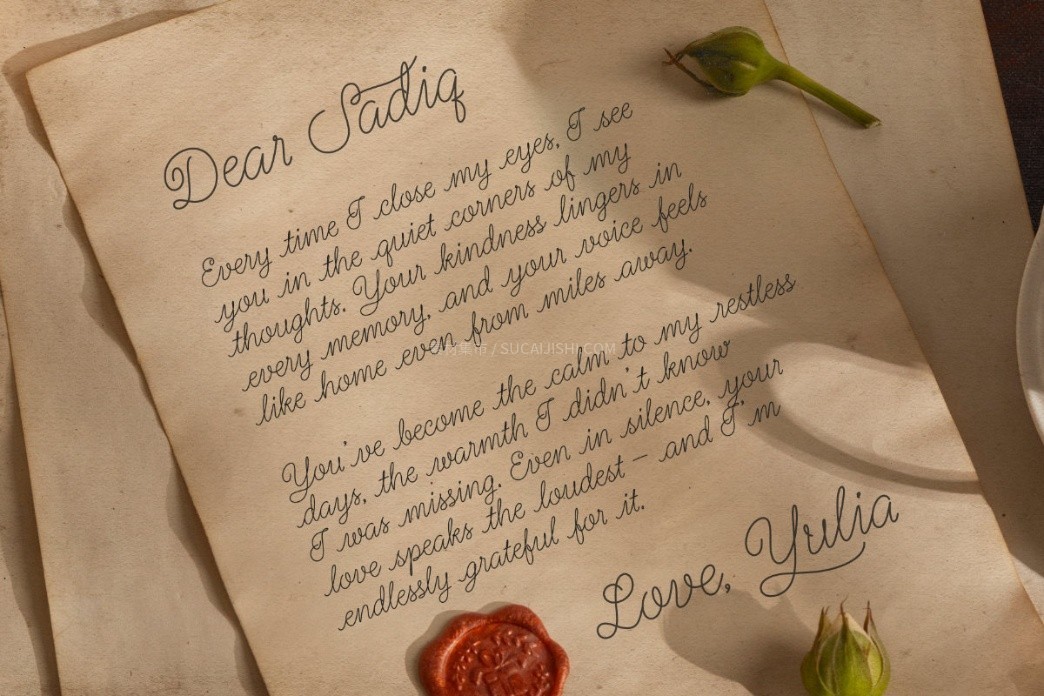 Dear Sadiq
Every time I close my eyes, I see
you in the quiet corners of my
thoughts. Your kindness lingers in
every memory, and your voice feels
like home even from miles away.
You've become the calm to my restless
days, the warmth I didn't know
I was missing. Even in silence, your
love speaks the loudest – and I'm
endlessly grateful for it.
Love, Yulia
/ SUCAIJISHI.COM